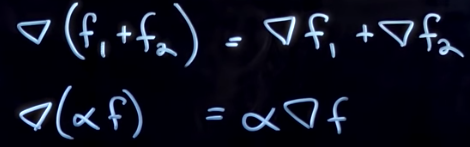 ∇(f₁+f₂) = ∇f₁ + ∇f₂
∇(αf) = α∇f